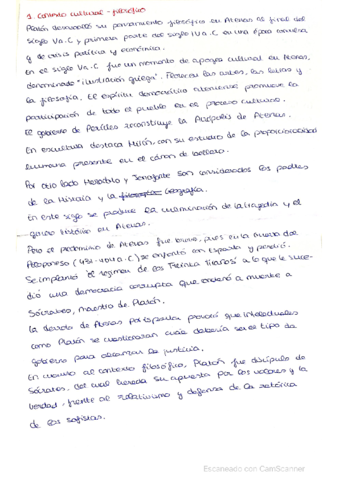 1. Contexto cultural - filosófico
Platón desarrolló su pensamiento filosófico en Atenas al final del
siglo V a.C y primera parte del siglo IV a.C en una época convulsa
y de crisis política y económica.
En el siglo V a.C fue un momento de apogeo cultural en Atenas,
denominado "ilustración griega". Florecen las artes, las letras y
la filosofía. El espíritu democrático ateniense promueve la
participación de todo el pueblo en el proceso cultural.
El gobierno de Pericles reconstruye la Acrópolis de Atenas.
En escultura destaca Mirón con su estudio de la proporcionalidad
humana presente en el cánon de belleza.
Por otro lado Heródoto y Jenofonte son considerados los padres
de la Historia y la Geografía.
En este siglo se produce la culminación de la tragedia y el
género histórico en Atenas.
Pero el predominio de Atenas fue breve, pues en la Guerra del
Peloponeso (431-404 a.C) se enfrentó con Esparta y perdió.
Se implantó "el régimen de los Treinta Tiranos" a lo que le suce-
dió una democracia corrupta que condenó a muerte a
Sócrates, maestro de Platón.
La derrota de Atenas por Esparta provocó que intelectuales
como Platón se cuestionaran cuál debería ser el tipo de
gobierno para alcanzar la justicia.
En cuanto al contexto filosófico, Platón fue discípulo de
Sócrates, del cual hereda su apuesta por los valores y la
verdad, frente al relativismo y defensa de la retórica
de los sofistas.
Escaneado con CamScanner